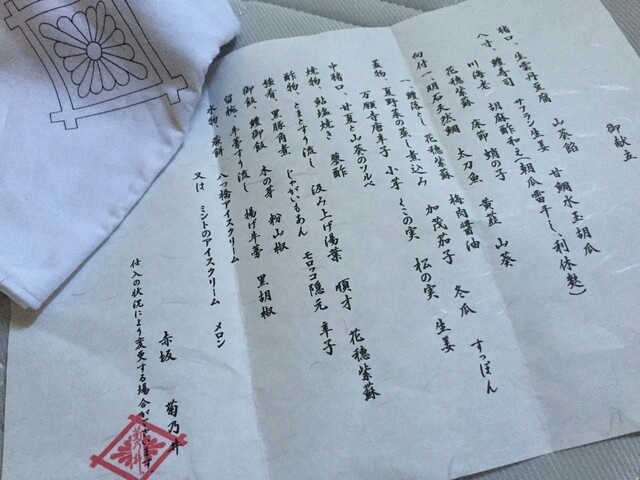 御献立
猪口、生雲丹豆腐 山葵餡 甘鯛水玉胡瓜
八寸、鱧寿司 サフラン生姜
胡麻酢和え(朝瓜雷干し、利休麩)
川海老 床節 蛸の子 黄韮 山葵
花穂紫蘇
向付一、明石天然鯛 太刀魚 梅肉醤油
一、鱧落とし 花穂紫蘇
蓋物、夏野菜の蒸し煮込み 加茂茄子 冬瓜 すっぽん
万願寺唐辛子 小芋 くこの実 松の実 生姜
中猪口、甘夏と山葵のソルベ
焼物、鮎塩焼き 蓼酢
酢物、とまとすり流し 汲み上げ湯葉 順才 花穂紫蘇
強肴、黒豚角煮 じゃがいもあん モロッコ隠元 辛子
御飯、鱧御飯 木の芽 粉山椒
留椀、牛蒡すり流し 揚げ牛蒡 黒胡椒
水物、蕨餅 八つ橋アイスクリーム
又は ミントのアイスクリーム メロン
赤坂 菊乃井
仕入の状況により変更する場合がございます